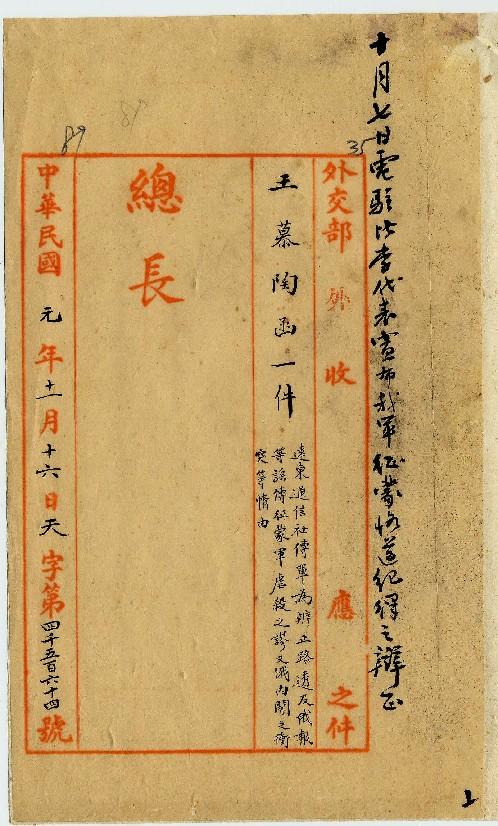 十月七日電駐比李代表宣布我軍征蒙恪遵紀律之辨正
35
外交部 外 收 應 之件
王慕陶函一件
遠東通信社傳單為辨正路透及俄報
等謠傳征蒙軍虐殺之謬又俄內閣之衝
突等情由
總長
89
中華民國元年十一月十六日天字第四千五百六十四號